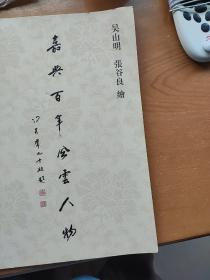 吴山明 張谷良 繪
嘉興百年風雲人物